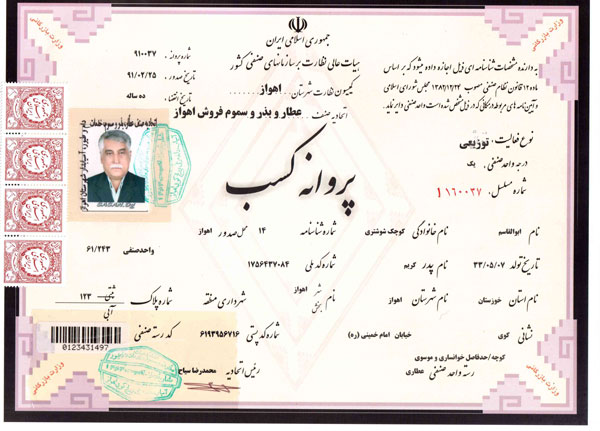 جمهوری اسلامی ایران
هیات عالی نظارت بر سازمانهای صنفی کشور
کمیسیون نظارت شهرستان اهواز
اتحادیه صنف عطار و بذر و سموم فروش اهواز
شماره پروانه ۹۱۰۰۳۷
تاریخ صدور ۹۱/۰۲/۲۵
تاریخ انقضاء ده ساله
به دارنده مشخصات شناسنامه ای ذیل اجازه داده میشود که بر اساس
ماده ۱۲ قانون نظام صنفی مصوب ۱۳۸۲/۱۲/۲۴ مجلس شورای اسلامی
و آیین نامه های مربوطه در مکانی که در ذیل مشخص شده است واحد صنفی دایر نماید.
نوع فعالیت: توزیعی
درجه واحد صنفی: یک
شماره مسلسل: ۱۱۶۰۰۳۷
پروانه کسب
نام ابوالقاسم نام خانوادگی کوچک شوشتری شماره شناسنامه ۱۴ محل صدور اهواز
تاریخ تولد ۳۳/۰۵/۰۷ نام پدر کریم شماره کد ملی ۱۷۵۶۴۳۷۰۸۴ واحد صنفی ۶۱/۲۴۳
نام استان خوزستان نام شهرستان اهواز نام شهر بخش اهواز شهرداری منطقه شماره پلاک ثبتی ۱۲۳ آبی
نشانی کوی خیابان امام خمینی (ره) شماره کد پستی ۶۱۹۳۹۵۶۷۱۶ کد رسته صنفی
کوچه/حدفاصل خوانساری و موسوی
رسته واحد صنفی عطاری
رئیس اتحادیه محمدرضا سیاح
0123431497
وزارت بازرگانی
وزارت بازرگانی
وزارت بازرگانی
وزارت بازرگانی